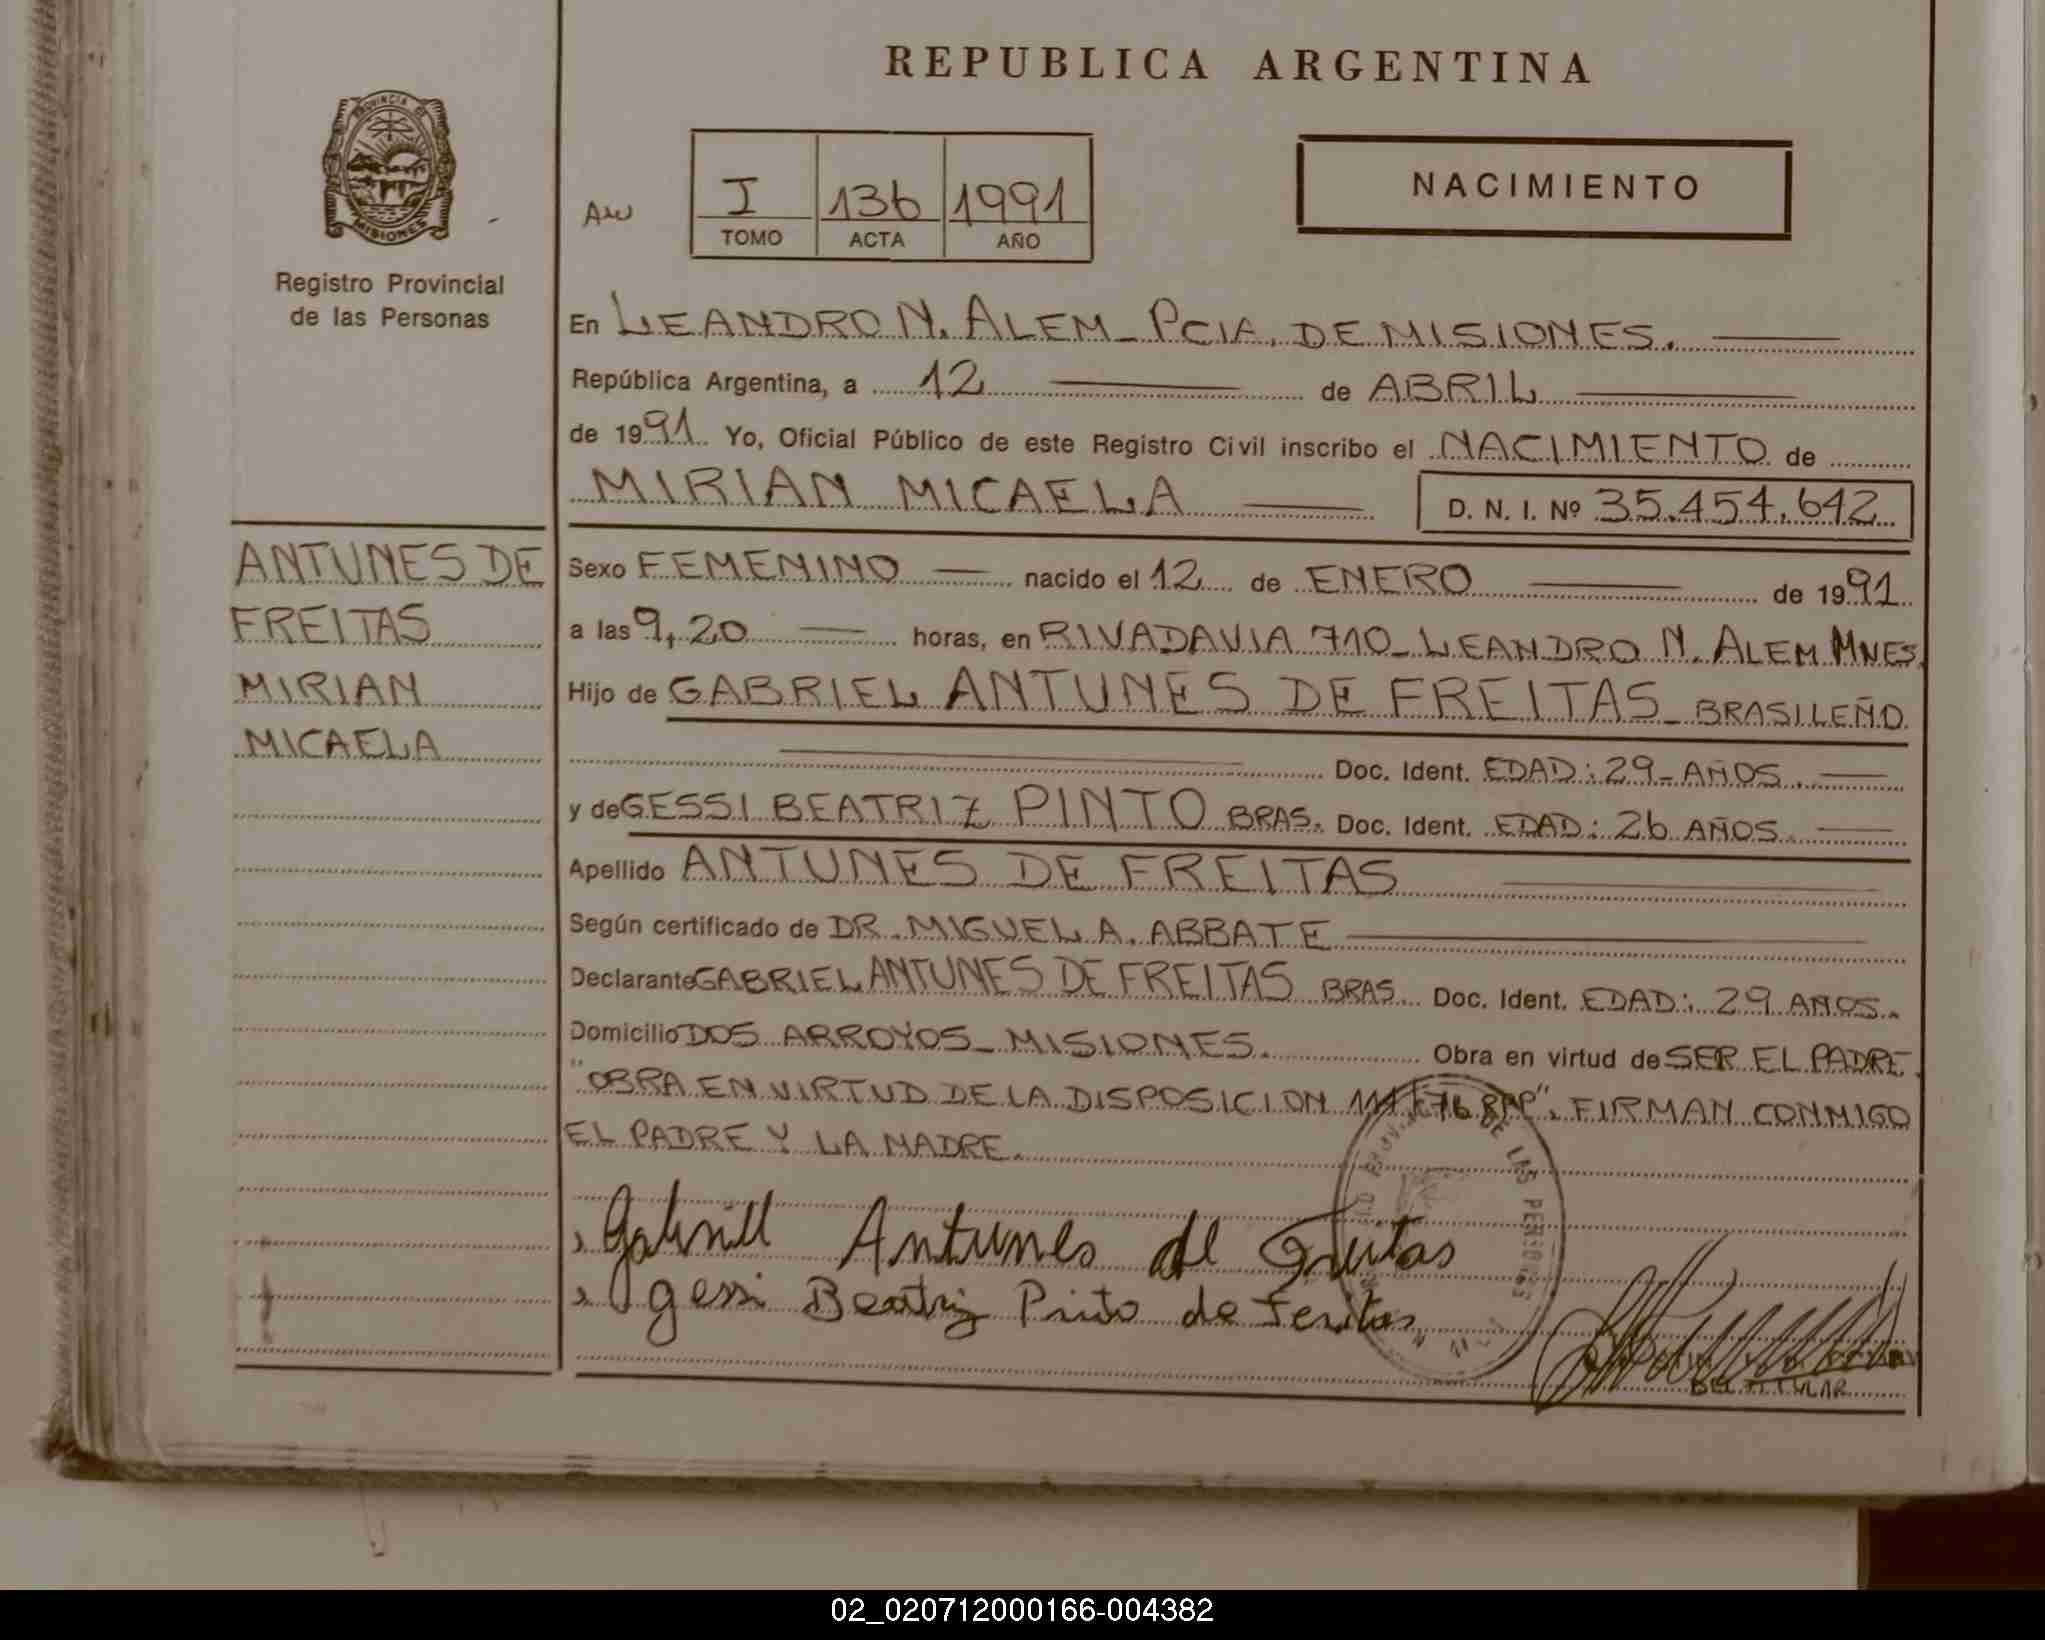 REPUBLICA ARGENTINA
PROVINCIA DE
MISIONES
Registro Provincial
de las Personas
I 136 1991
TOMO ACTA AÑO
NACIMIENTO
En LEANDRO N. ALEM_ PCIA. DE MISIONES.
República Argentina, a 12 de ABRIL
de 1991 Yo, Oficial Público de este Registro Civil inscribo el NACIMIENTO de
MIRIAN MICAELA D. N. I. Nº 35.454.642
ANTUNES DE
FREITAS
MIRIAN
MICAELA
Sexo FEMENINO nacido el 12 de ENERO de 1991
a las 9,20 horas, en RIVADAVIA 710_ LEANDRO N. ALEM MNES.
Hijo de GABRIEL ANTUNES DE FREITAS_ BRASILEÑO
Doc. Ident. EDAD: 29_ AÑOS.
y de GESSI BEATRIZ PINTO BRAS. Doc. Ident. EDAD: 26 AÑOS.
Apellido ANTUNES DE FREITAS
Según certificado de DR. MIGUEL A. ABBATE
Declarante GABRIEL ANTUNES DE FREITAS BRAS. Doc. Ident. EDAD: 29 AÑOS.
Domicilio DOS ARROYOS_ MISIONES. Obra en virtud de SER EL PADRE.
"OBRA EN VIRTUD DE LA DISPOSICION 111/76 RPP". FIRMAN CONMIGO
EL PADRE Y LA MADRE.
Gabriell Antunes de Freitas
gessi Beatriz Pinto de Feritas
DE LAS PERSONAS
DEL TITULAR
02_020712000166-004382